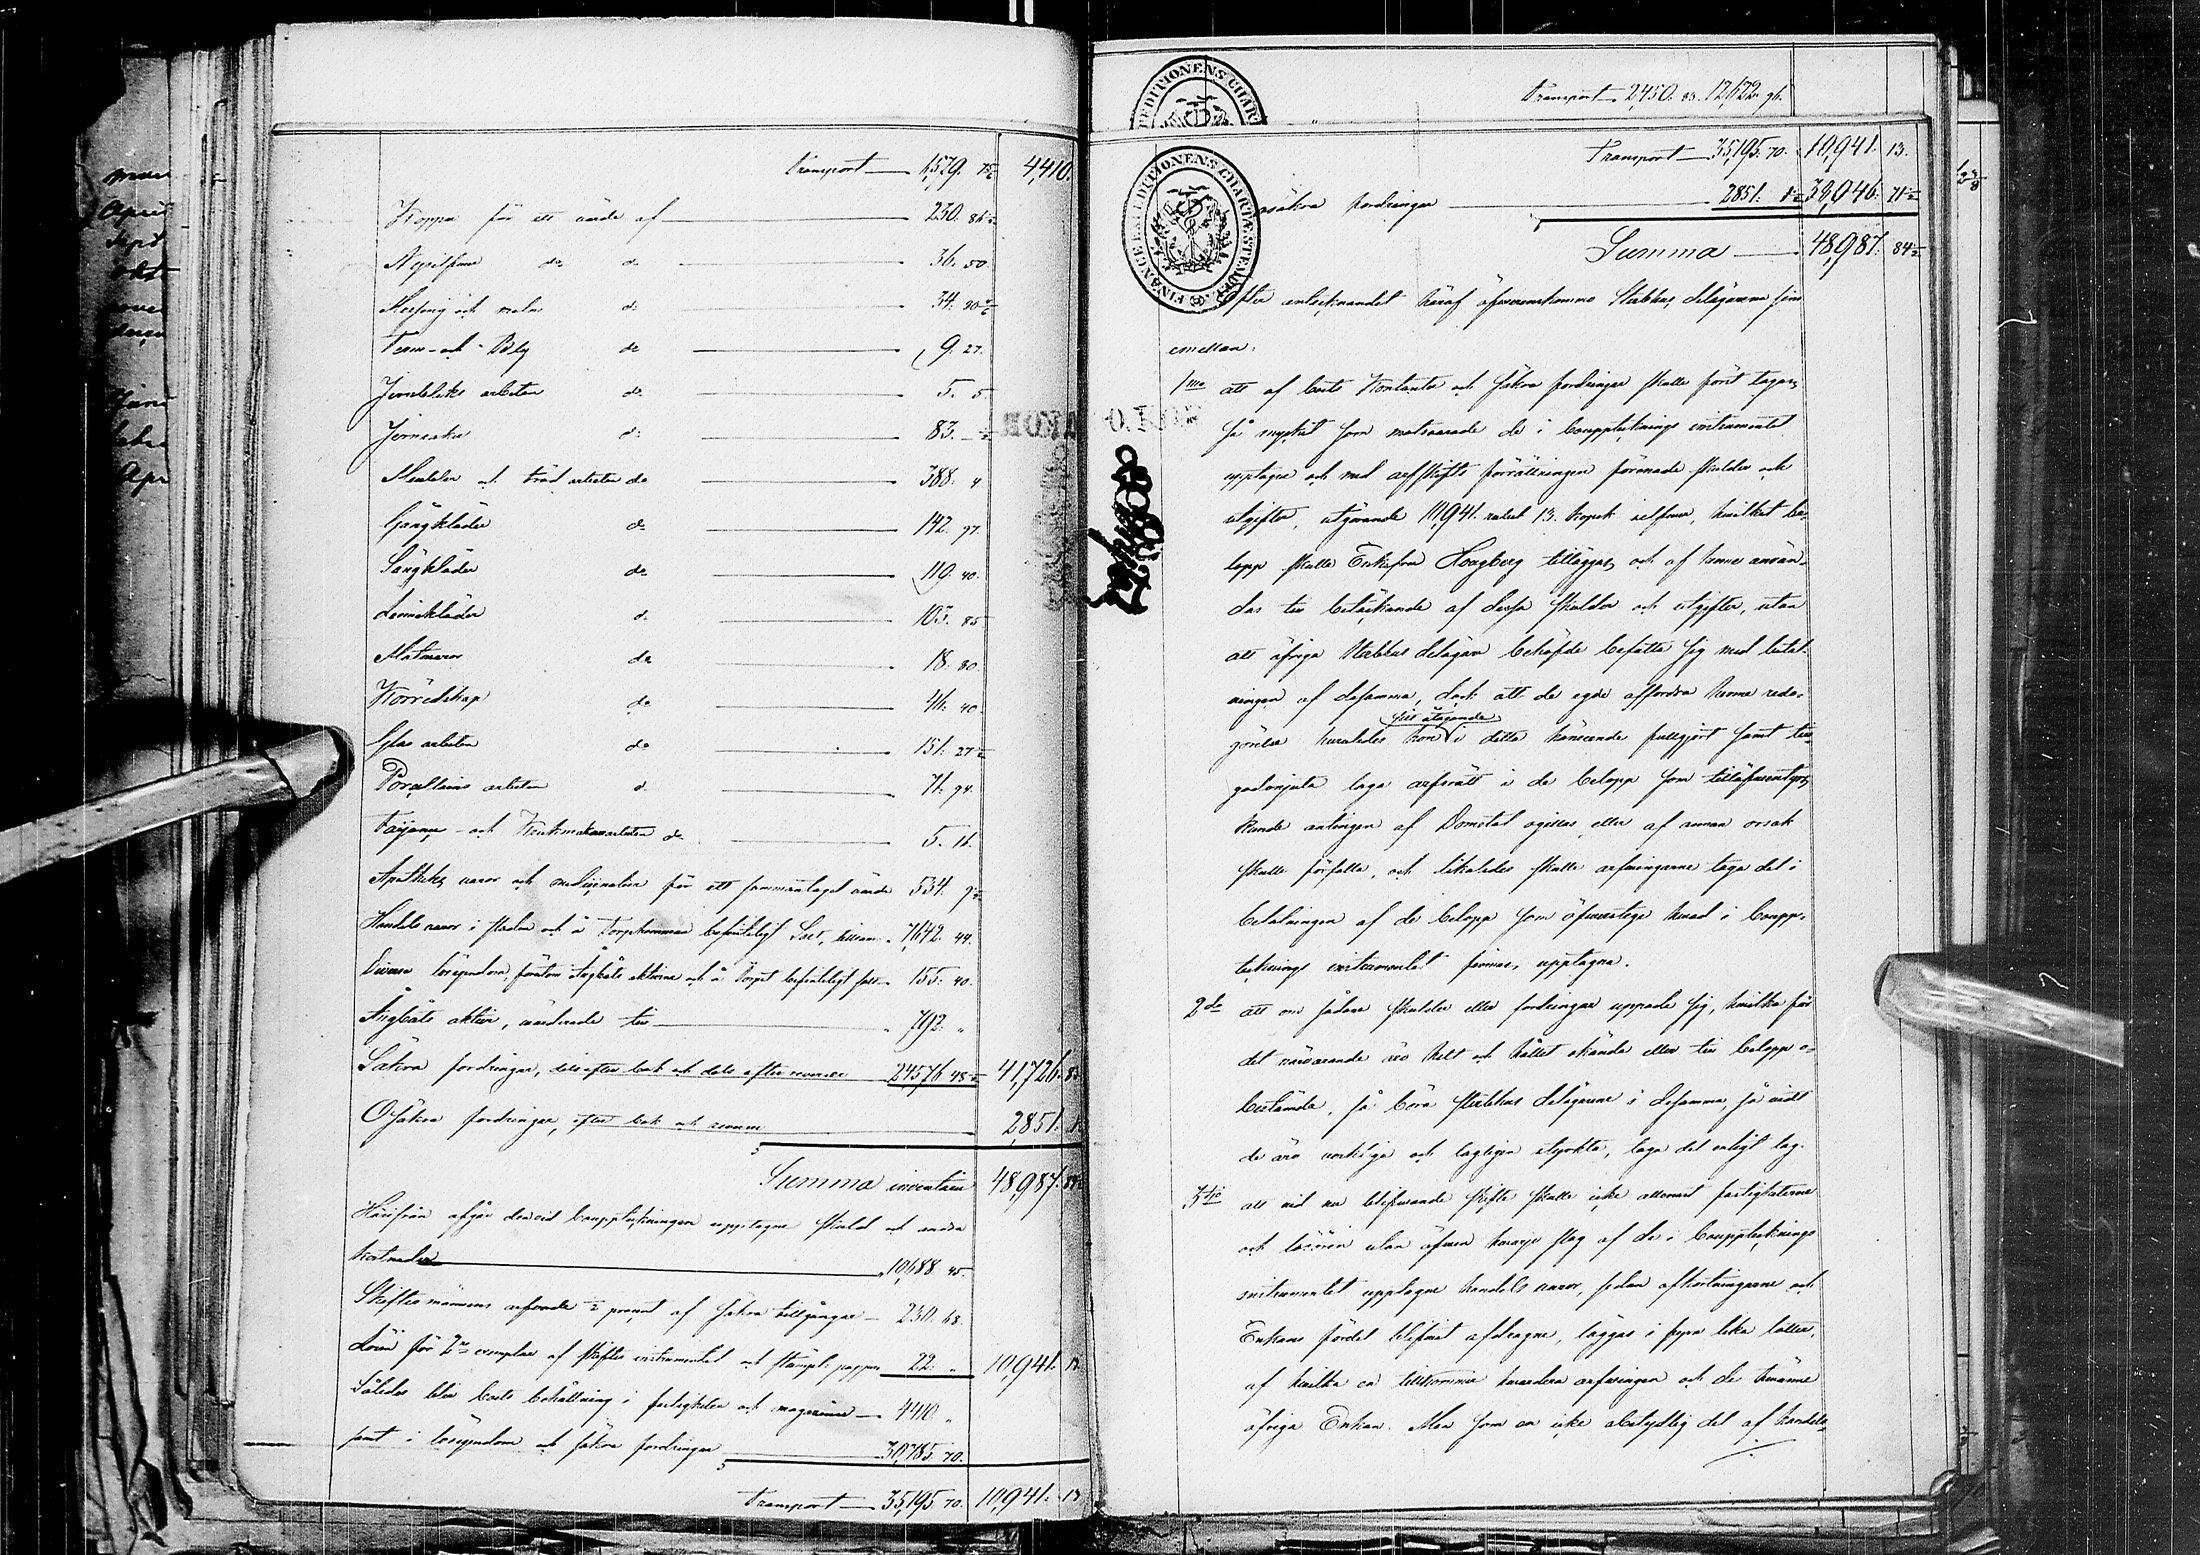 Transport 1,579. 4,410.
Koppar för ett värde af 230. 86
Nysilfver do do 36. 50
Messing och malm do 34. 20
Tenn- och Bly do 9. 27.
Jernblecks arbeten do 5. 5
Jernsaker do 83.
Meubler och träd arbeten do 388. 4
Gångkläder do 142. 97.
Sängkläder do 119. 40.
Linnekläder do 103. 85
Matvaror do 18. 80.
Körredskap do 411. 40.
Glas arbeten do 151. 27
Porcellains arbeten do 71. 94.
Fayance- och Krukmakarearbeten do 5. 16.
Apotheks varor och medicinalier för ett sammanlagdt värde 534. 9
Handels varor i staden och å Torpshamman befinteligt Salt, tillsam. 7,642. 44.
Diverse lösegendom, förutom Ångbåts aktierne och å Torpet befinteligt salt 155. 40.
Ångbåts aktier, värderade till 792. "
Säkra fordringar, dels efter bok och dels efter reverser 24576 48 41,726.
Osäkra fordringar, efter bok och reverser 2,851.
Summa inventarii 48,987.
Härifrån afgår den vid bouppteckningen upptagne skuld och andra
kostnader 10,688 45.
Skiftesmännens arfvode ½ procent af säkra tillgångar 230. 68.
Lösen för 2ne exemplar af skiftes instrumentet och stämpl: papper 22. " 10,941. 13
Således blir boets behållning i fastigheter och magasiner 4410 "
samt i lösegendom och säkra fordringar 30,785 70.
Transport 35,195 70. 10,941. 13
Transport 2,450. 83. 12,622. 96.
FINANCE EXPEDITIONENS CHARTÆ
Transport 35,195. 70. 10,941. 13.
osäkra fordringar 2851. 38,046. 71
Summa 48,987. 84
Efter antecknandet häraf öfverenskommo Sterbhus delägarena sins
emellan:
1mo att af boets Kontanter och säkra fordringar skulle först tagas
så mycket som motsvarade de i bouppteknings instrumentet
upptagne och med arfskifts förrättningen förenade skulder och
utgifter, utgörande 10,941. rubel 13. kopek silfver, hvilket be-
lopp skulle Enkefru Hougberg tilläggas och af henne använ-
das till betäckande af dessa skulder och utgifter, utan
att öfriga Sterbhus delägare behöfde befatta sig med betal-
ningen af desamma, dock att de egde affordra henne redo-
görelse huruledes hon sitt åtagande i detta hänseende fullgjort samt till-
godonjuta laga arfsrätt i de belopp som tilläfventyrs
kunde antingen af Domstol ogillas eller af annan orsak
skulle förfalla, och likaledes skulle arfvingarne taga del i
betalningen af de belopp som öfverstege hvad i boupp-
teknings instrumentet finnes upptagne.
2do att om sådane skulder eller fordringar yppade sig, hvilka för
det närvarande äro helt och hållet okända eller till belopp o-
bestämda, så böra sterbhus delägarne i desamma, så vidt
de äro verkliga och lagligen styrkta, taga del enligt lag.
3tio att vid nu blifvande skifte skulle icke allenast fastigheterne
och lösören utan äfven hvarje slag af de i bouppteknings
instrumentet upptagne handels varor, sedan afkortningarne och
Enkans fördel blifvit afdragne, läggas i fyra lika lotter,
af hvilka en tillkommer hvardera arfvingen och de tvänne
öfriga Enkan. Men som en icke obetydlig del af handels-